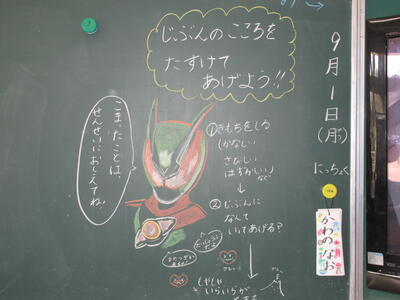 じぶんのこころを
たすけて
あげよう!!
9月1日(月)
にっちょく
かわのなお
こまったことは、
せんせいにおしえてね。
①きもちをしる
(かなしい
さびしい
はずかしい)
など
②じぶんに
なんて
いってあげる?
いらいらが